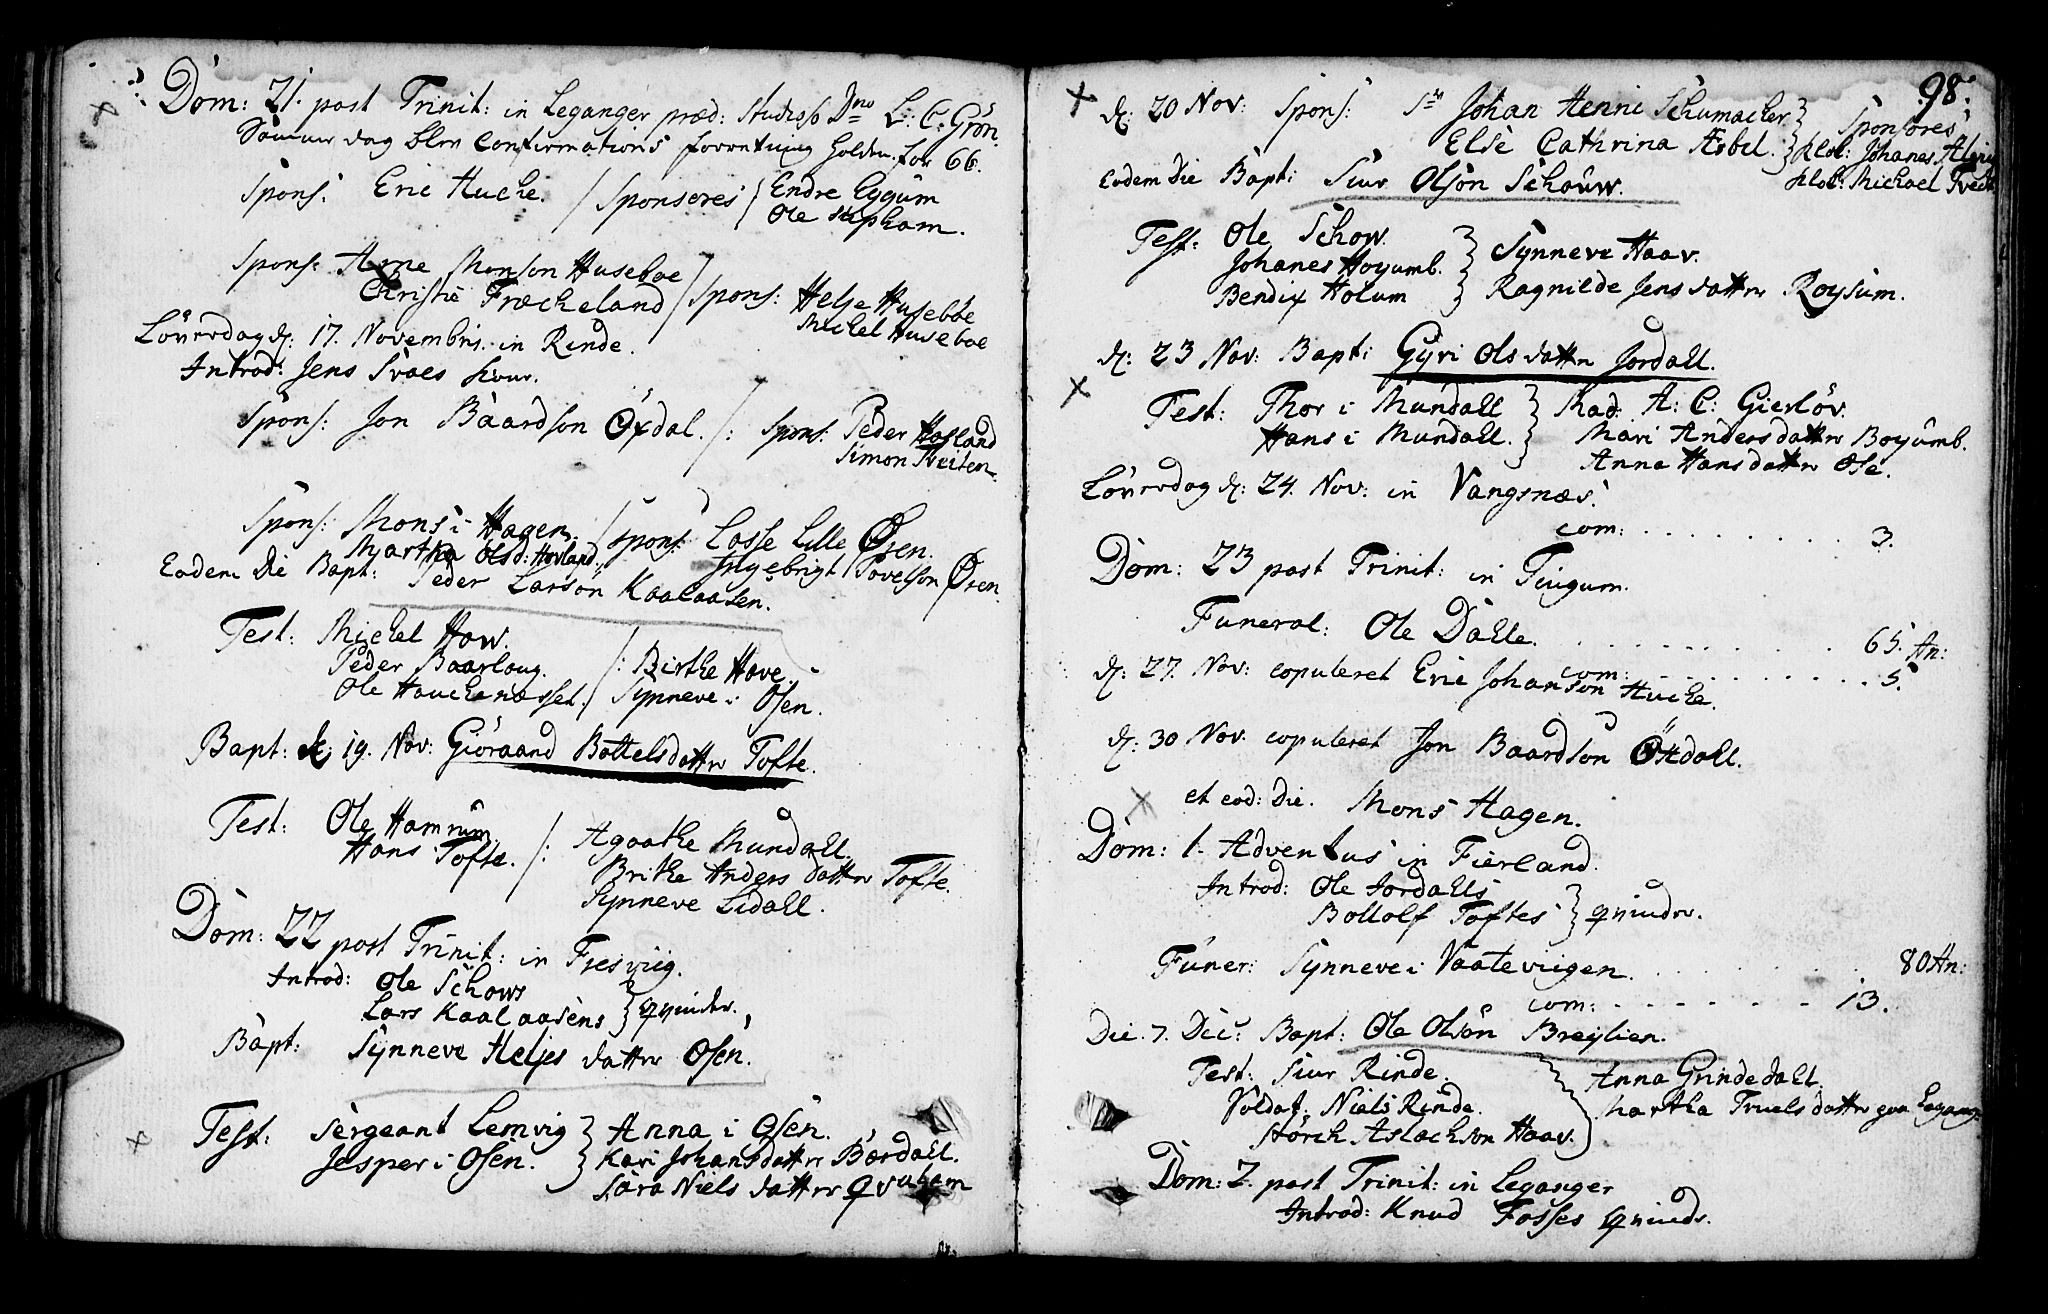 Dom: 21. post Trinit: in Leganger præd: Studioss Dno L: C: Grön.
Samme dag blev Confirmations forretning holden for 66.
Spons: Eric Huche. / Sponsores Endre Eggum
Ole Stepham.
Spons: Arne Monson Huseboe
Christie Frecheland / Spons: Helje Huseböe
Michel Huseboe
Löverdag d: 17. Novembris in Rinde.
Introd: Jens Svaes hver.
Spons: Jon Baardson Öxdal. /: Spons: Peder Hofland
Simon Tveiten
Spons: Mons i Hagen. / Spons: Lasse Lille Øren.
Martha Olsd: Hovland. Ingebrigt Povelson Øren.
Eodem Die Bapt: Peder Larsön Kaalaasen.
Test: Michel How.
Peder Baarloug. /: Birthe Hove.
Ole Hauchenæsset. / Synneve i Osen.
Bapt: d: 19. Nov: Giöraand Bottelsdatter Tofte.
Test: Ole Hamrum
Hans Tofte. /: Agaathe Mundall.
Brithe Anders datter Tofte.
Synneve Lidall.
Dom: 22 post Trinit: in Fresviig.
Introd: Ole Schows
Lars Kaalaasens } qvinder.
Bapt: Synneve Heljes datter Osen.
Test: Sergeant Lemvig } Anna i Osen.
Jesper i Osen. } Kari Johansdatter Bærdall.
Sara Niels datter Qvaham
98.
d: 20 Nov: Spons: Sr Johan Henric Schumacher } Sponsores
Else Cathrina Æsbel. } Klok: Johanes
Klok: Michael Tveit
eodem die Bapt: Siur Olsön Schouw.
Test: Ole Schow.
Johanes Hoyumb. } Synneve Haav.
Bendix Holum } Ragnilde Jens datter Roysum.
d: 23 Nov: Bapt: Gyri Olsdatter Jordall.
Test: Thor i Mundall } Mad. A: C: Gierlöv.
Hans i Mundall. } Mari Anders datter Boyumb.
Anna Hansdatter Ose.
Löverdag d: 24. Nov: in Vangsnæs.
com: . . . . . . . . . 3.
Dom: 23 post Trinit: in Tiugum.
Funeral: Ole Dahle. . . . . . . . . . 65. An:
com: . . . . . . . . . 5.
d: 27. Nov: copuleret Eric Johanson Huche.
d: 30 Nov. copuleret Jon Baardson Öxdall.
et eod: die. Mons Hagen.
Dom: 1. Adventus in Fierland.
Introd: Ole Jordahls
Bollolf Toftes } qvinder.
Funer: Synneve i Vaateviigen. . . . . . . . 80 An:
com: . . . . . . . 13.
Die. 7. Dec: Bapt: Ole Olsön Breylien.
Test: Siur Rinde. Anna Grindedall.
Soldat: Niels Rinde. Martha Truels datter paa Legang:
Störch Aslachson Haav.
Dom: 2. post Trinit: in Leganger
Introd: Knud Fosses qvinde.